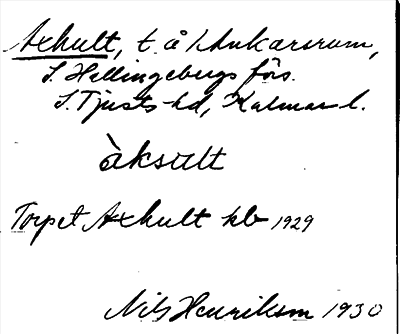 Axhult, t. å Ankarsrum,
S. Hellingebergs förs.
S. Tjusts hd, Kalmar l.
àksult
Torpet Axhult kb 1929
Nils Henriksm 1930